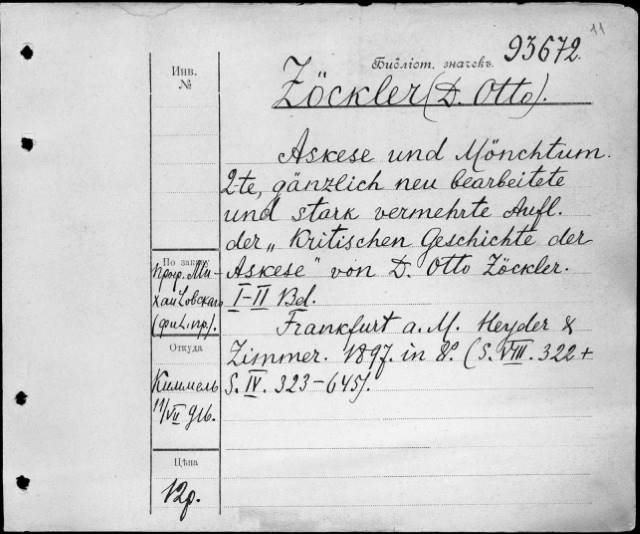 11
Библіот. значекъ. 93672.
Инв.
№
Zöckler (D. Otto).
Askese und Mönchtum.
2-te, gänzlich neu bearbeitete
und stark vermehrte Aufl.
der „Kritischen Geschichte der
Askese“ von D. Otto Zöckler.
I-II Bd.
Frankfurt a. M. Heyder &
Zimmer. 1897. in 8º. (S. VIII. 322 +
S. IV. 323-645).
По заказу
проф. Ми-
хайловскаго
(фил. пр.).
Откуда
Киммель
11/VII 916.
Цѣна
12р.